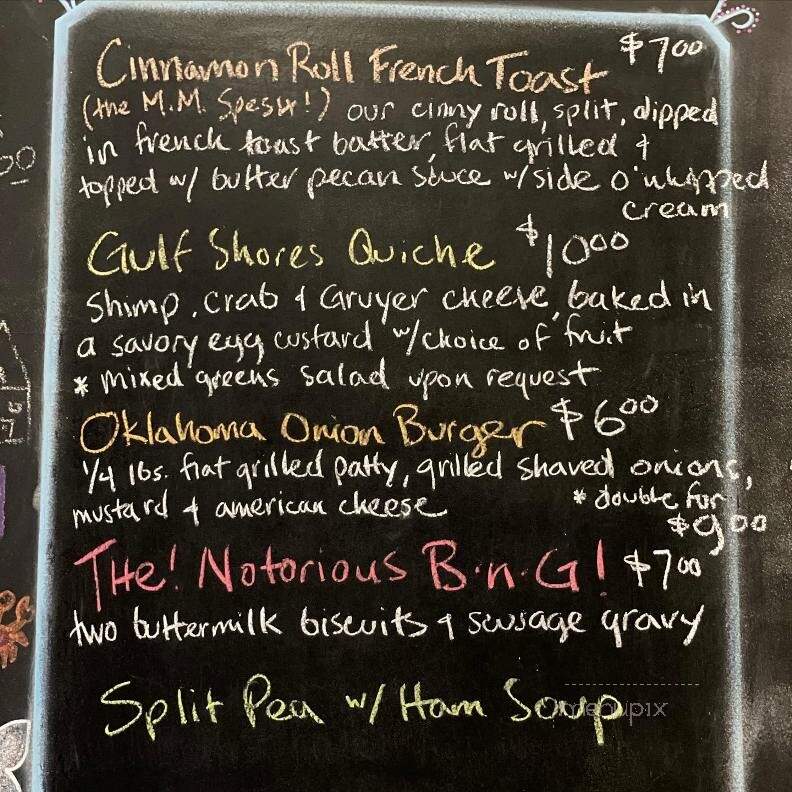 Cinnamon Roll French Toast $7.00
(the M.M. Spesh!) our cinny roll, split, dipped
in french toast batter, flat grilled &
topped w/ butter pecan sauce w/side o' whipped
cream
Gulf Shores Quiche $10.00
Shimp, crab & Gruyer cheese, baked in
a savory egg custard w/choice of fruit
* mixed greens salad upon request
Oklahoma Onion Burger $6.00
1/4 lbs. flat grilled patty, grilled shaved onions,
mustard & american cheese * double for
$9.00
THe! Notorious B.n.G! $7.00
two buttermilk biscuits & sausage gravy
Split Pea w/ Ham Soup